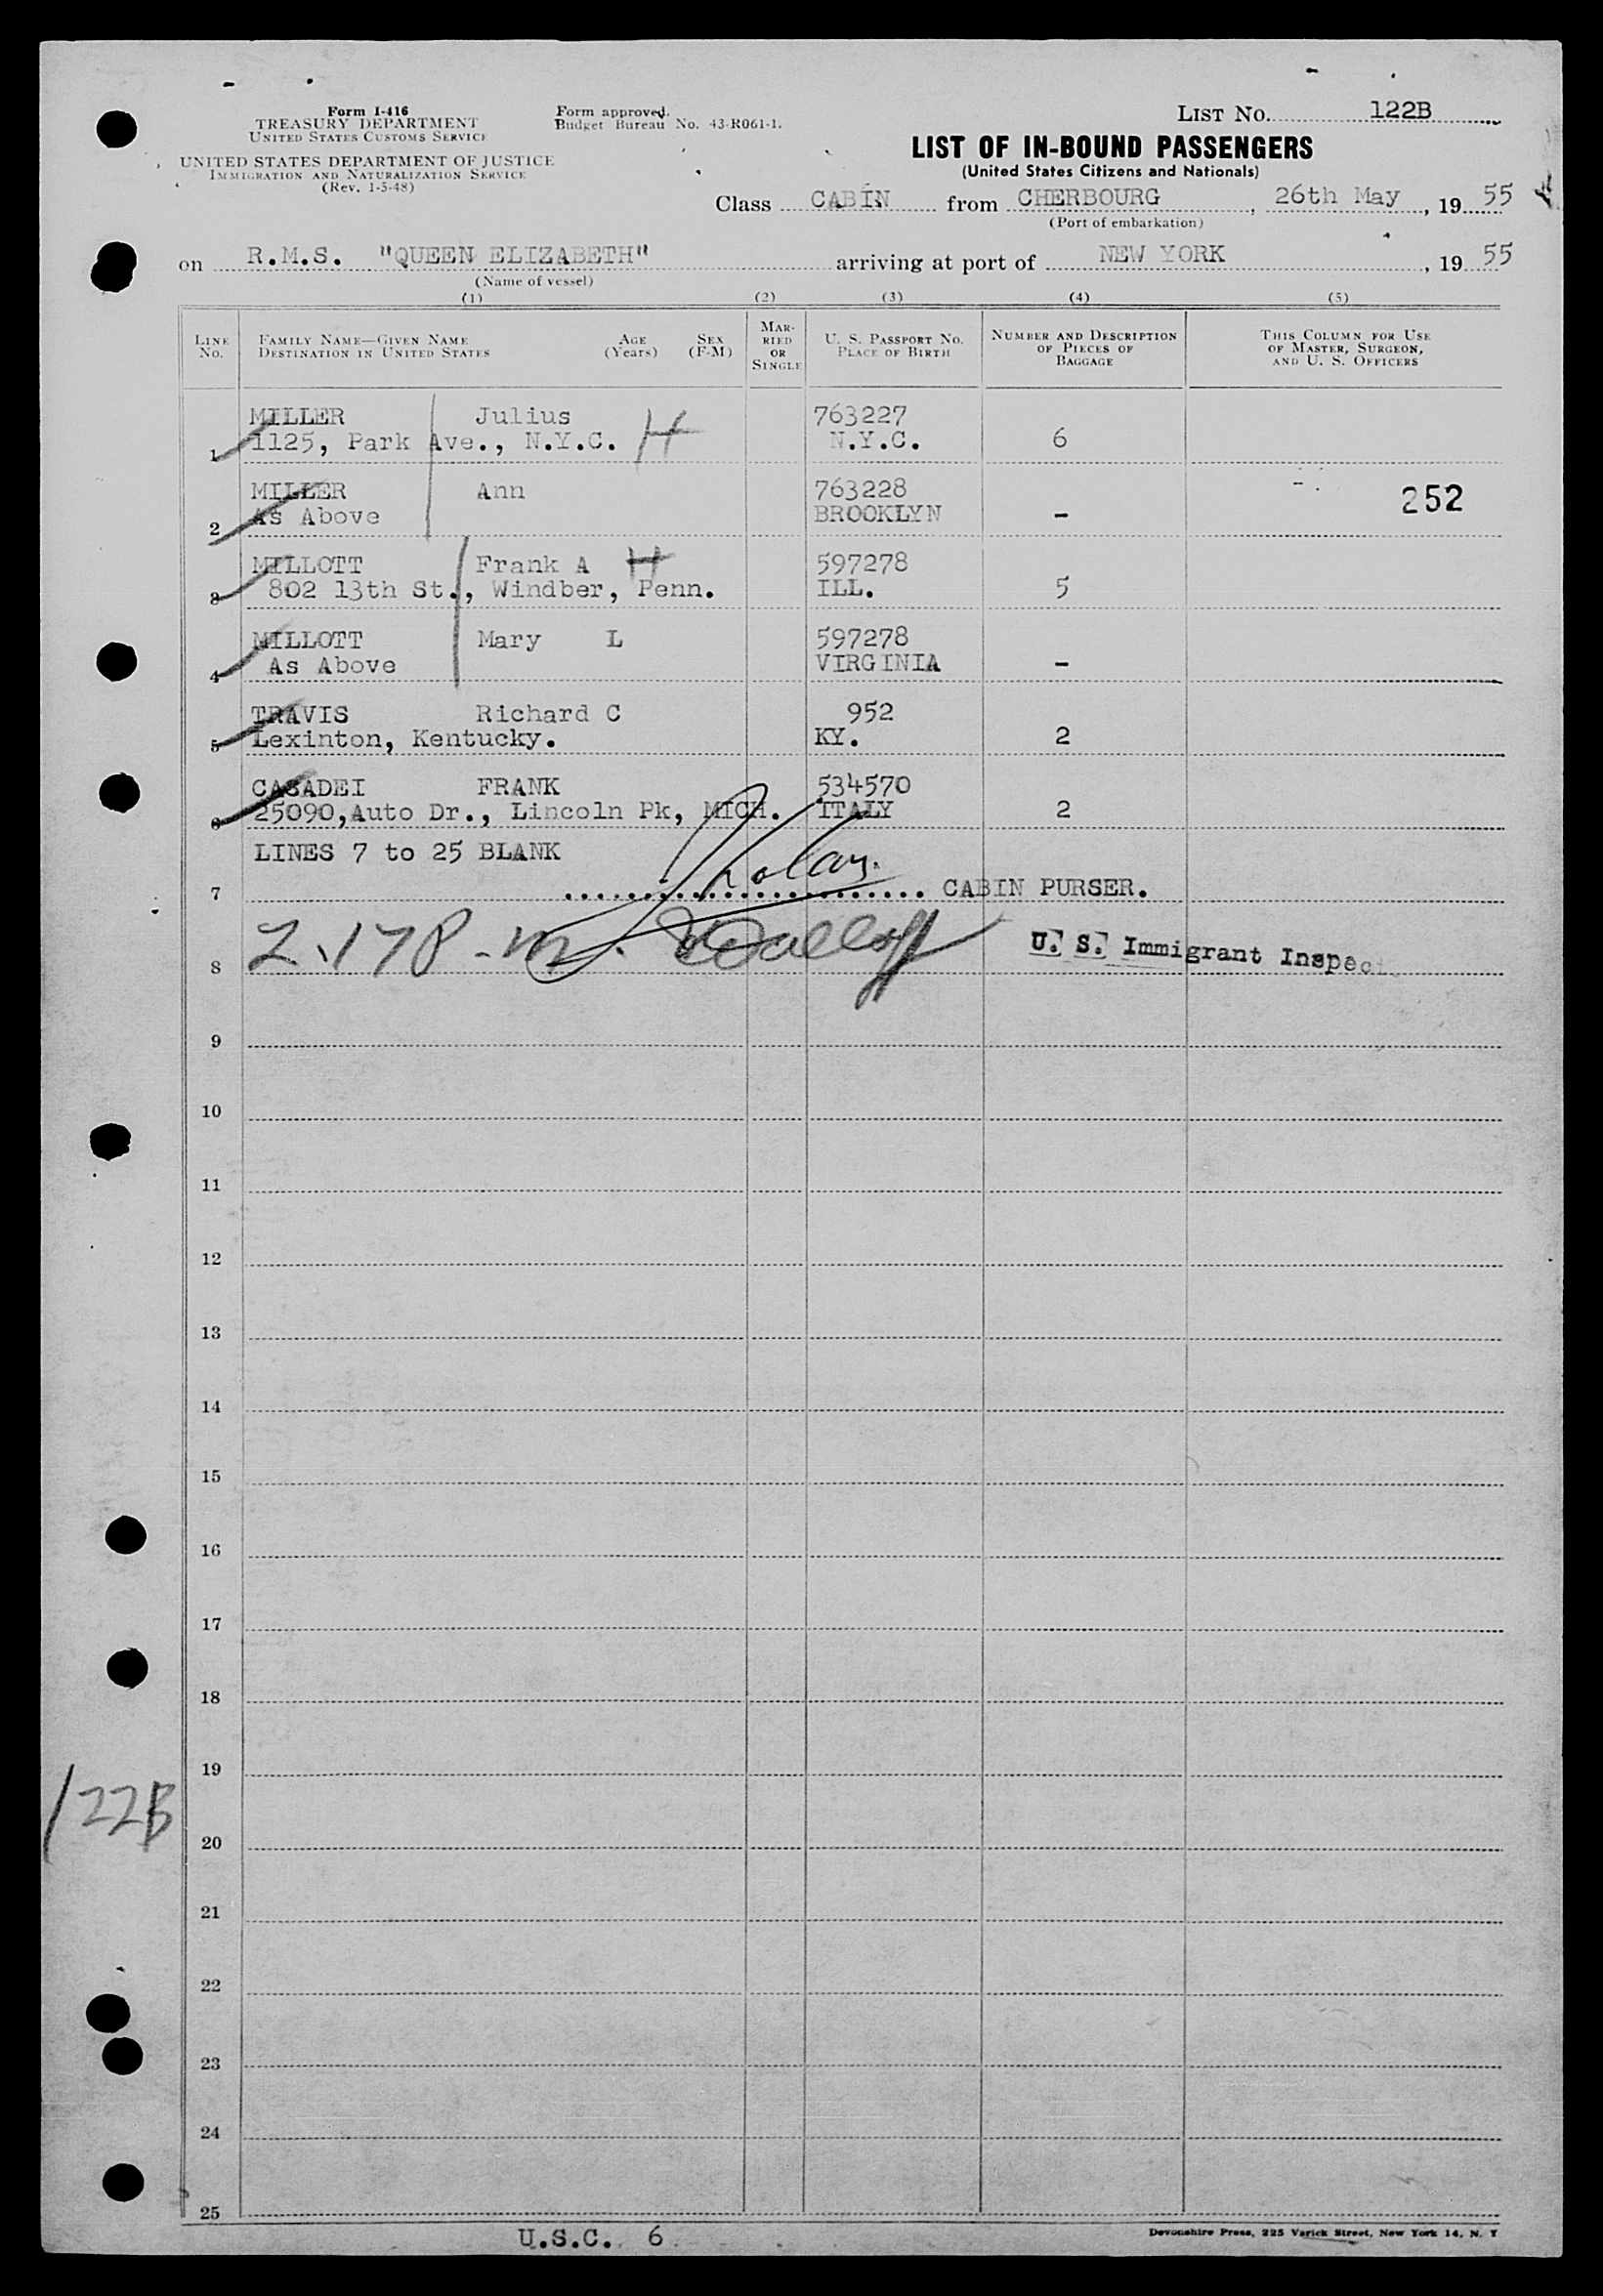 Form I-416
TREASURY DEPARTMENT
UNITED STATES CUSTOMS SERVICE
UNITED STATES DEPARTMENT OF JUSTICE
IMMIGRATION AND NATURALIZATION SERVICE
(Rev. 1-5-48)
Form approved.
Budget Bureau No. 43-R061-1.
LIST NO. 122B
LIST OF IN-BOUND PASSENGERS
(United States Citizens and Nationals)
Class CABIN from CHERBOURG, 26th May, 19 55
(Port of embarkation)
on R.M.S. "QUEEN ELIZABETH" arriving at port of NEW YORK, 19 55
(Name of vessel)
(1) (2) (3) (4) (5)
LINE NO.
FAMILY NAME—GIVEN NAME AGE SEX
DESTINATION IN UNITED STATES (Years) (F-M)
MARRIED OR SINGLE
U. S. PASSPORT NO.
PLACE OF BIRTH
NUMBER AND DESCRIPTION
OF PIECES OF
BAGGAGE
THIS COLUMN FOR USE
OF MASTER, SURGEON,
AND U. S. OFFICERS
MILLER Julius 763227
1 1125, Park Ave., N.Y.C. H N.Y.C. 6
MILLER Ann 763228 252
2 As Above BROOKLYN -
MILLOTT Frank A H 597278
3 802 13th St., Windber, Penn. ILL. 5
MILLOTT Mary L 597278
4 As Above VIRGINIA -
TRAVIS Richard C 952
5 Lexinton, Kentucky. KY. 2
CASADEI FRANK 534570
6 25090,Auto Dr., Lincoln Pk, MICH. ITALY 2
LINES 7 to 25 BLANK
7 CABIN PURSER.
8 U. S. Immigrant Inspec
9
10
11
12
13
14
15
16
17
18
19
122B
20
21
22
23
24
25
U.S.C. 6
Devonshire Press, 225 Varick Street, New York 14, N. Y